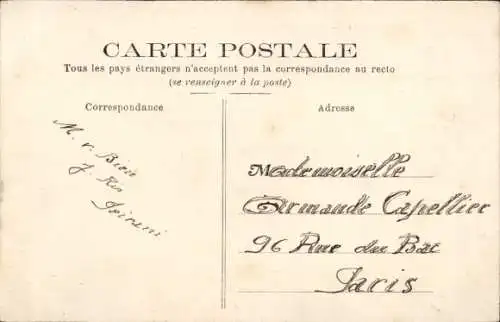 CARTE POSTALE
Tous les pays étrangers n'acceptent pas la correspondance au recto
(se renseigner à la poste)
Correspondance
Adresse
M. r.
Mademoiselle
Armande Capellier
96 Rue du Bac
Paris